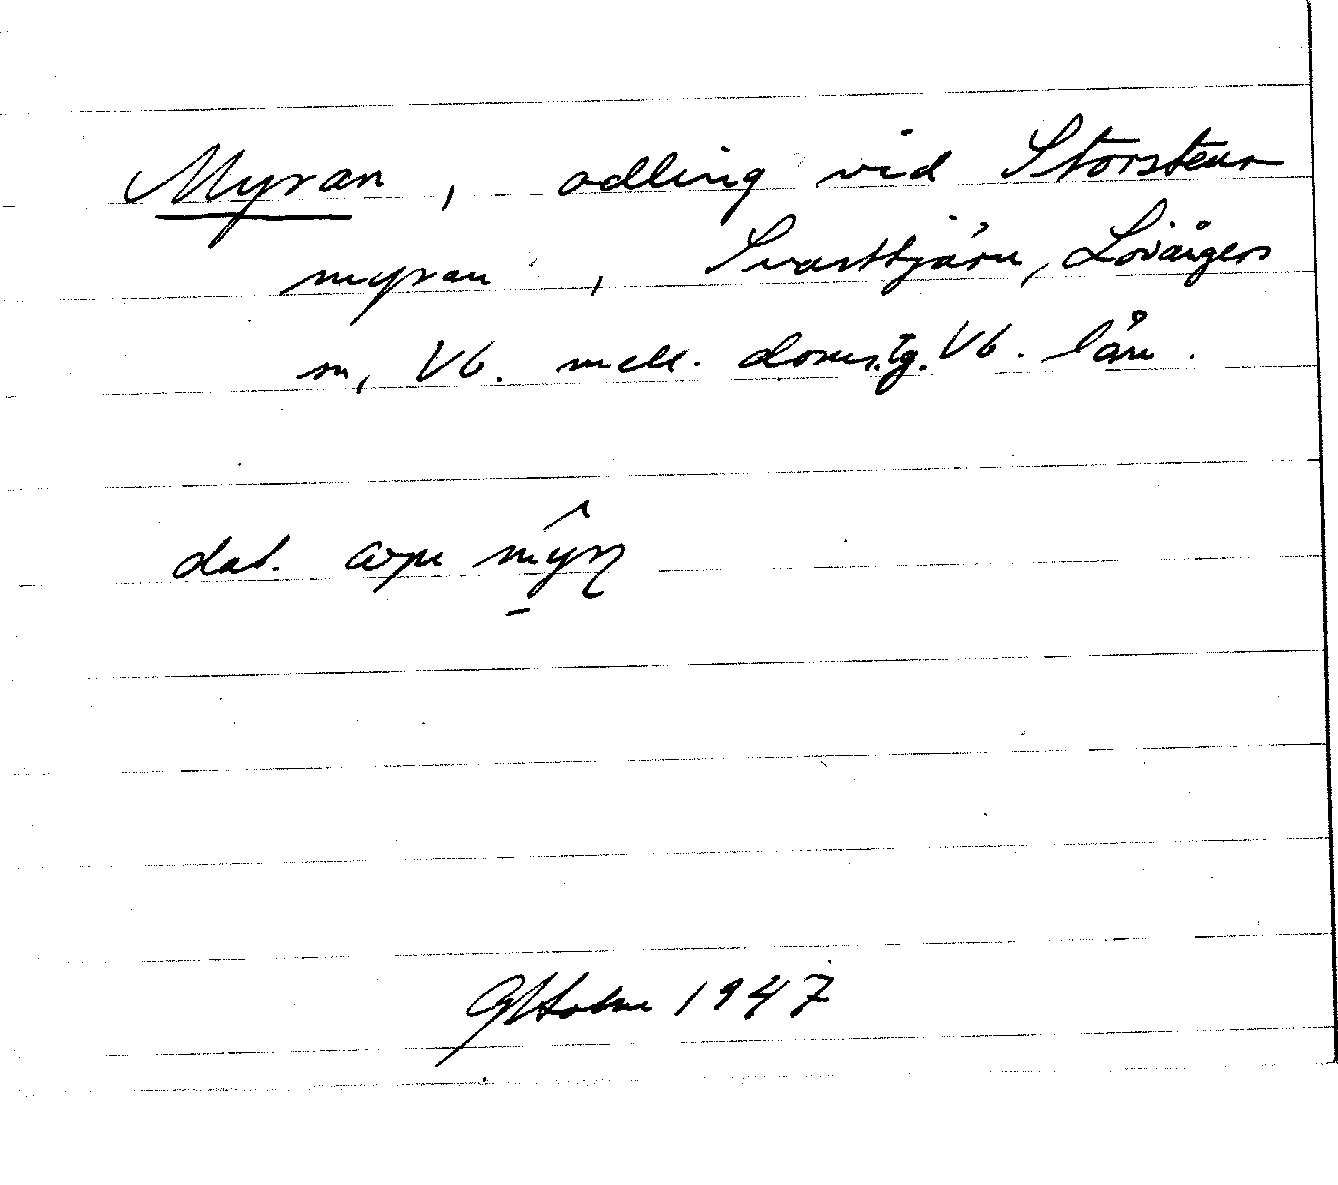 Myran, odling vid Storstens-
myran, Svarttjärn, Lövångers
sn, Vb. mell. doms.tg. Vb. län.
dat. opu mŷrn
GHolm 1947